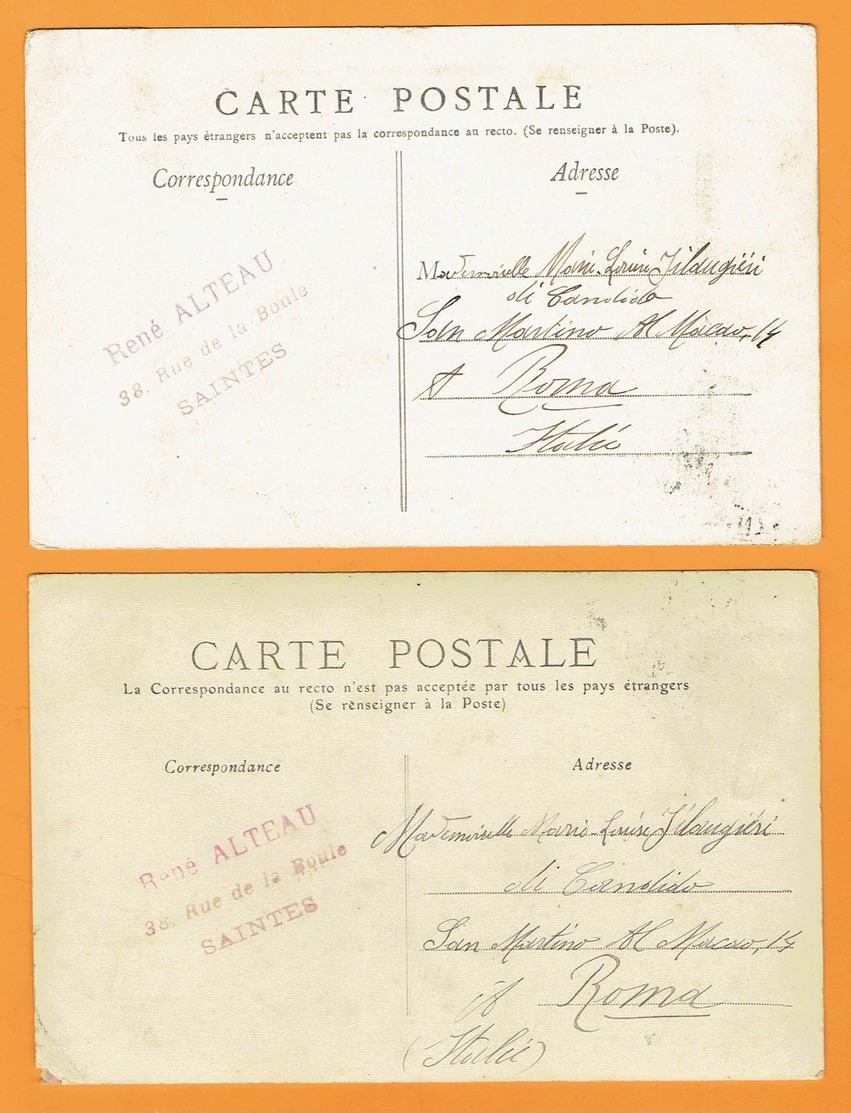 CARTE POSTALE
Tous les pays étrangers n'acceptent pas la correspondance au recto. (Se renseigner à la Poste).
Correspondance
Adresse
René ALTEAU
38, Rue de la Boule
SAINTES
Mademoiselle Marie-Louise Filangiéri
di Candido
San Martino Al Macao, 14
A Roma
Italie
CARTE POSTALE
La Correspondance au recto n'est pas acceptée par tous les pays étrangers
(Se renseigner à la Poste)
Correspondance
Adresse
René ALTEAU
38, Rue de la Boule
SAINTES
Mademoiselle Marie-Louise Filangiéri
di Candido
San Martino Al Macao, 14
A Roma
(Italie)